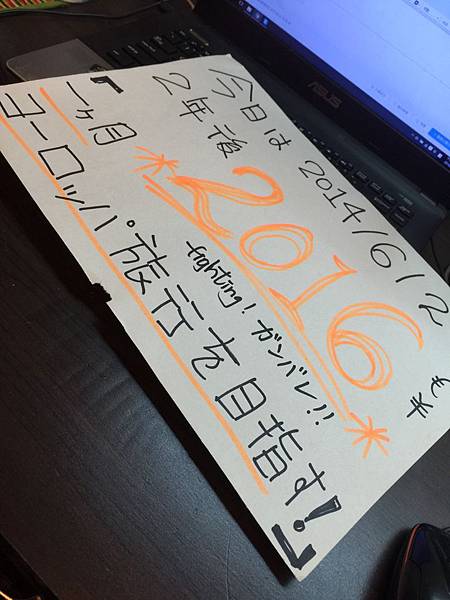 今日は 2014/6/2
2年後
*2016*
fighting! ガンバレ!!
『一ヶ月
ヨーロッパ旅行を目指す!』
ASUS